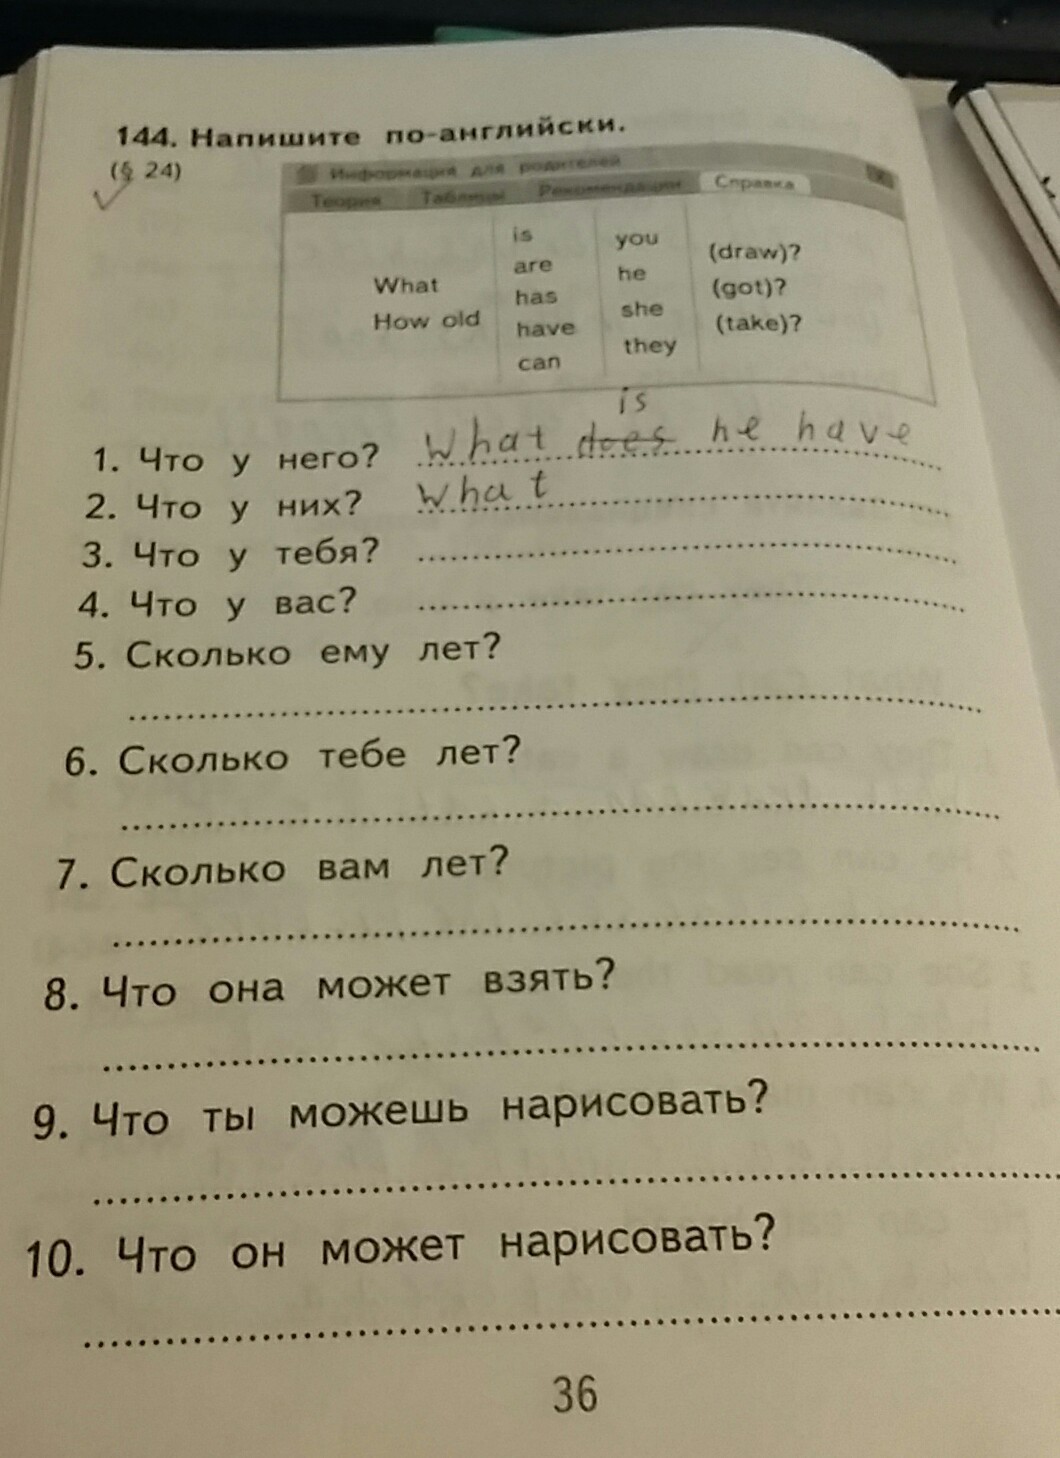 144. Напишите по-английски.
(§ 24)
Информация для родителей
Теория Таблицы Рекомендации Справка
What
How old
is
are
has
have
can
you
he
she
they
(draw)?
(got)?
(take)?
is
1. Что у него? What does he have
2. Что у них? What
3. Что у тебя?
4. Что у вас?
5. Сколько ему лет?
6. Сколько тебе лет?
7. Сколько вам лет?
8. Что она может взять?
9. Что ты можешь нарисовать?
10. Что он может нарисовать?
36